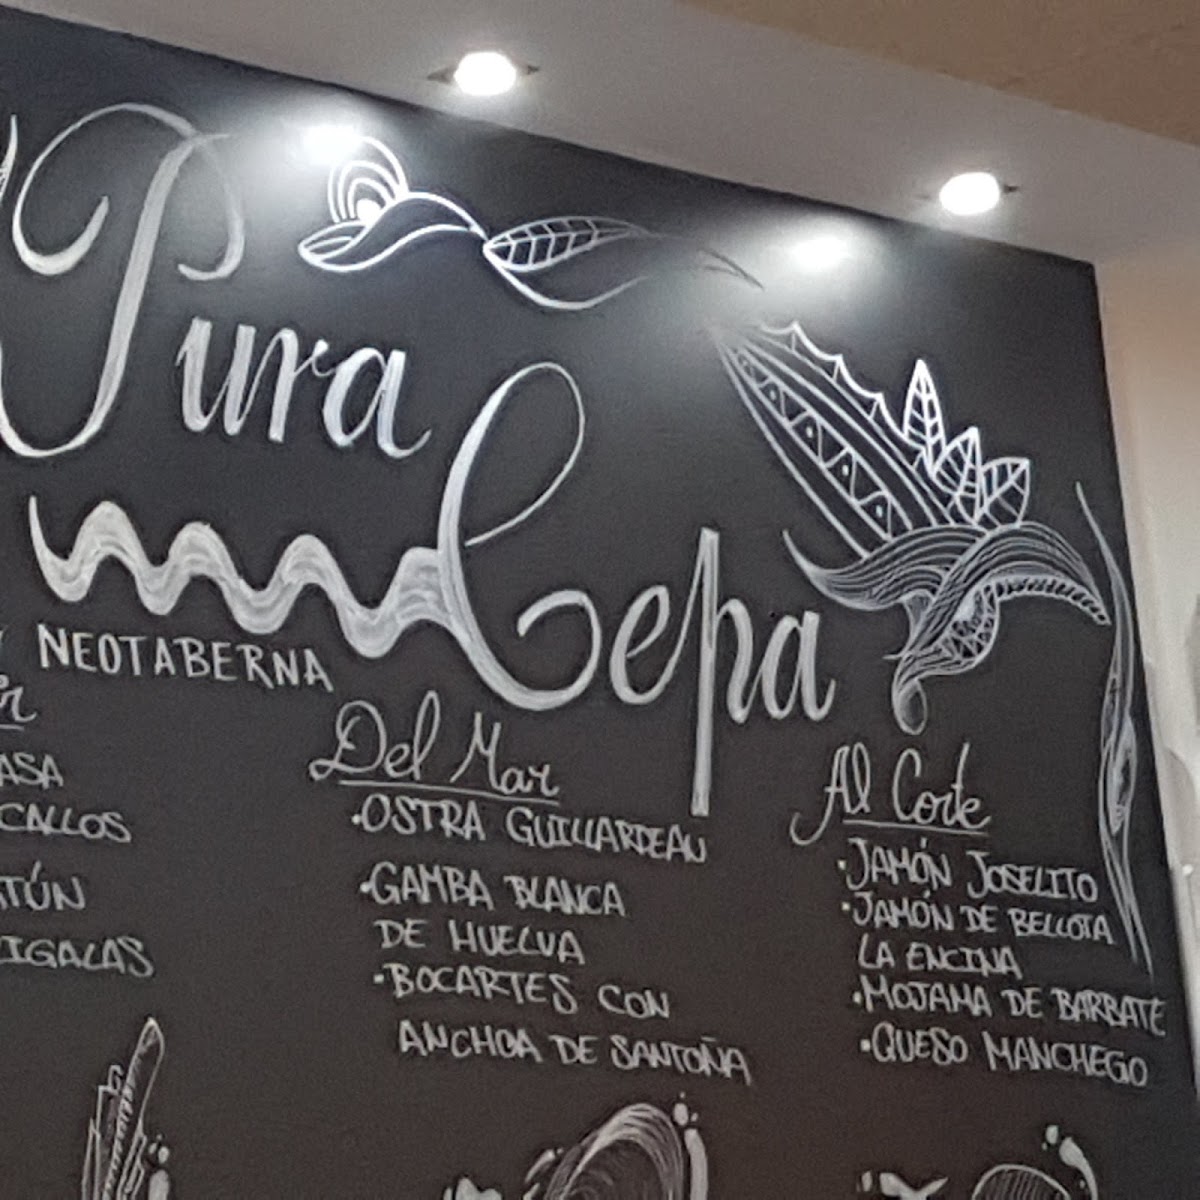 Pura
Cepa
NEOTABERNA
CALLOS
Del Mar
·OSTRA GUILLARDEAU
·GAMBA BLANCA
DE HUELVA
·BOCARTES CON
ANCHOA DE SANTOÑA
Al Corte
·JAMÓN JOSELITO
·JAMÓN DE BELLOTA
LA ENCINA
·MOJAMA DE BARBATE
·QUESO MANCHEGO